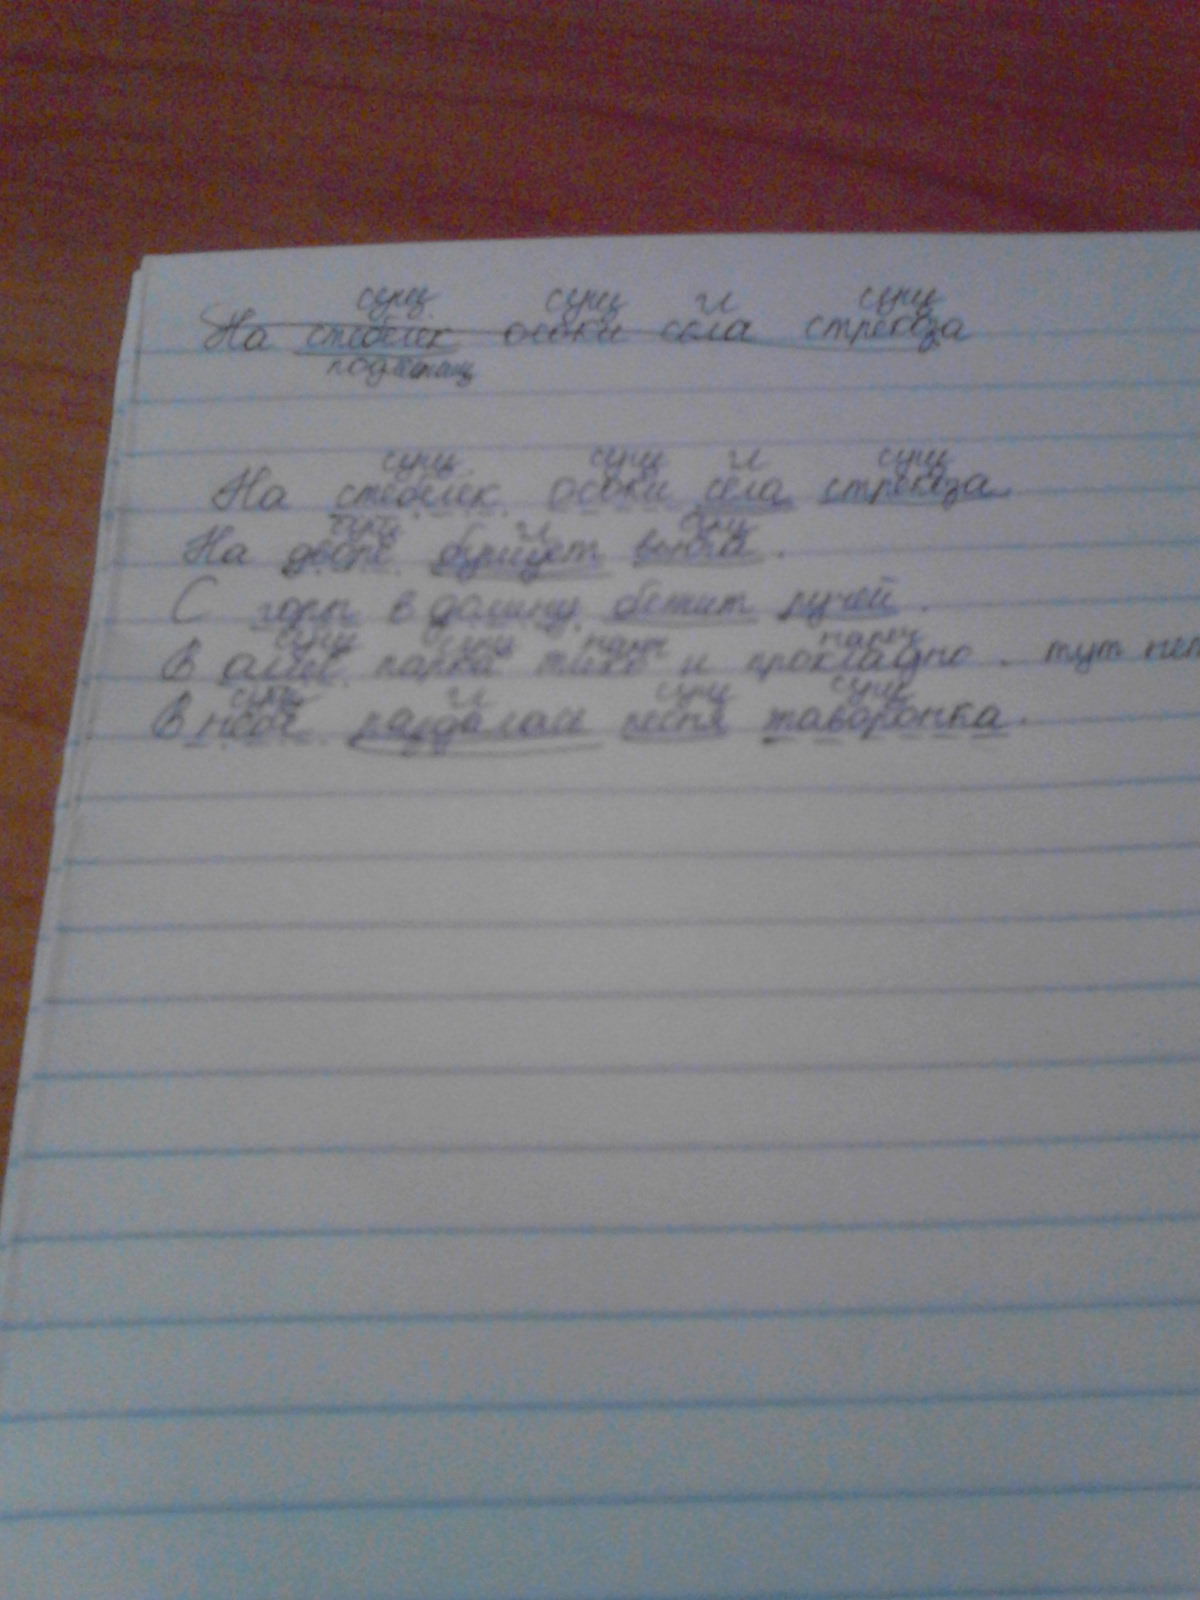 сущ сущ гл сущ
На стебелек осоки села стрекоза
подлежащ
сущ сущ гл сущ
На стебелек осоки села стрекоза.
сущ гл сущ
На дворе бушует вьюга.
С горы в долину бежит ручей.
сущ сущ нареч нареч
В аллее парка тихо и прохладно. тут нет
сущ гл сущ сущ
В небе раздалась песня жаворонка.